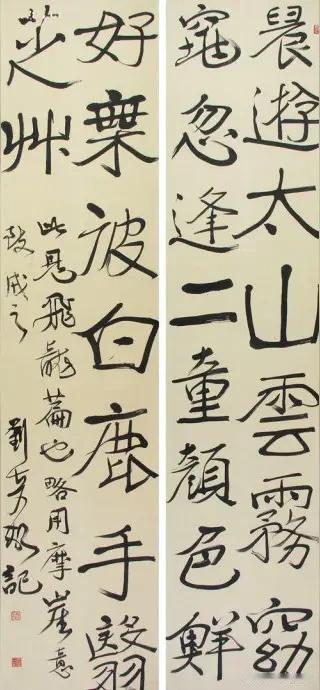 晨遊太山雲霧窈
窕忽逢二童顏色鮮
好乘彼白鹿手翳
芝艸
此見飛龍篇也略用摩崖意
成之 劉彥湖記